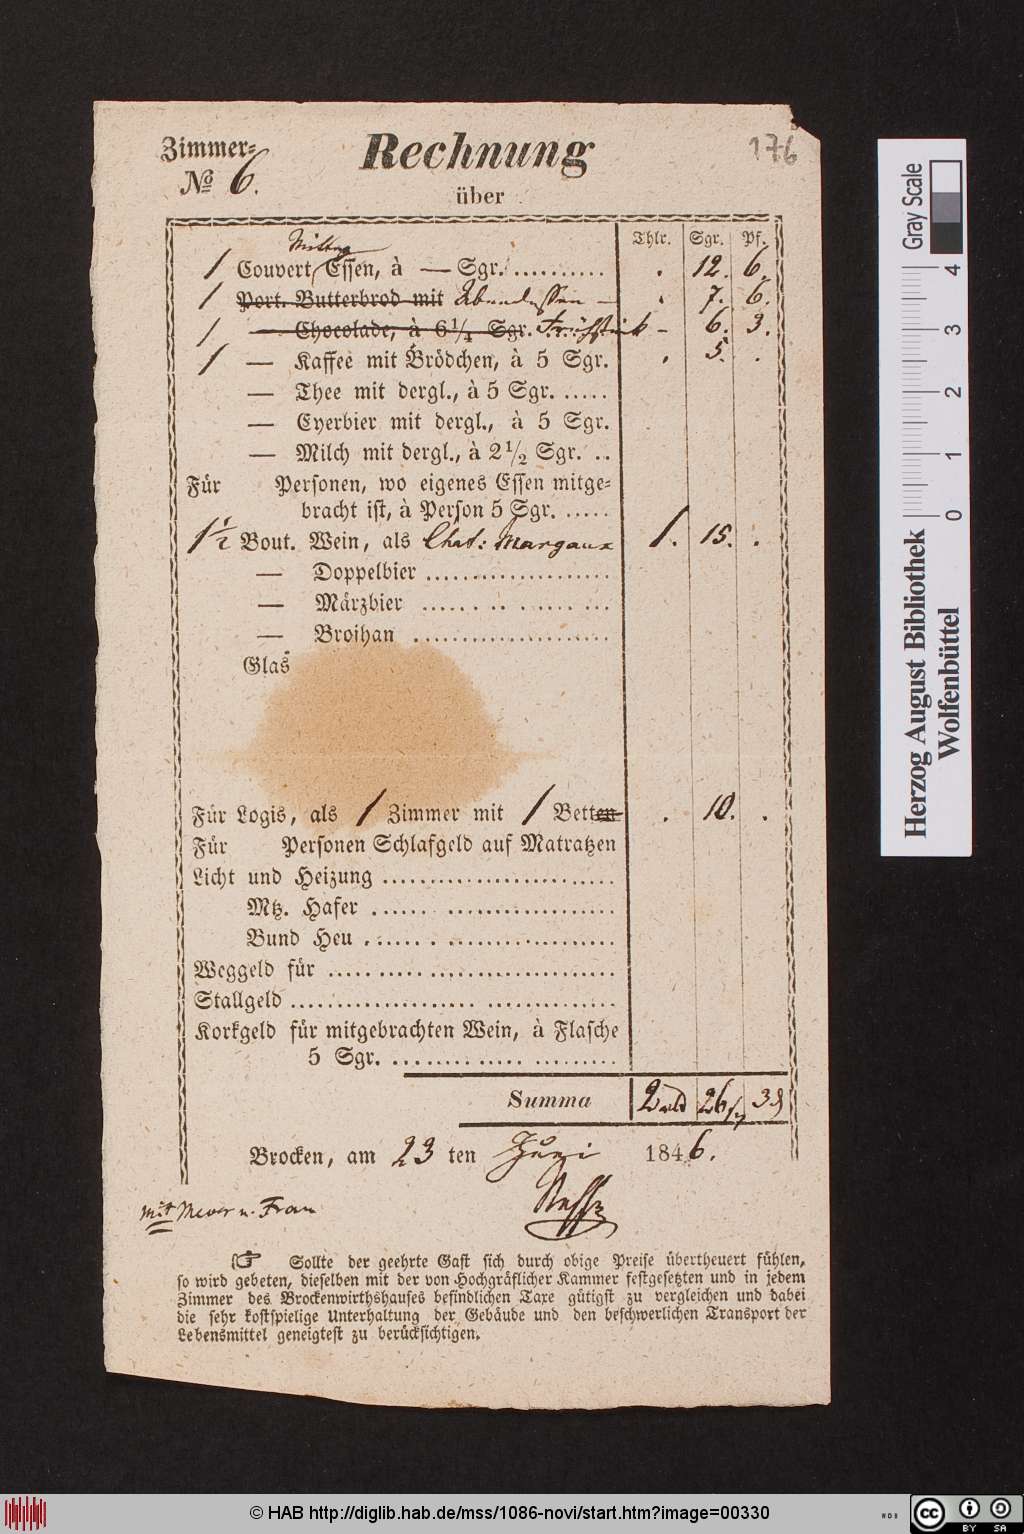 Zimmer=
№ 6.
Rechnung
176
über
Thlr. Sgr. Pf.
Mittag
1 Couvert Essen, à — Sgr. .......... . 12. 6.
1 Port. Butterbrod mit Abendessen — . 7. 6.
1 — Chocolade, à 6 1/4 Sgr. Frühstück — 6. 3.
1 — Kaffee mit Brödchen, à 5 Sgr. . 5. .
— Thee mit dergl., à 5 Sgr. .....
— Eyerbier mit dergl., à 5 Sgr.
— Milch mit dergl., à 2 1/2 Sgr. ..
Für Personen, wo eigenes Essen mitge=
bracht ist, à Person 5 Sgr. .....
1 1/2 Bout. Wein, als Chat: Margaux 1. 15. .
— Doppelbier ......................
— Märzbier ......................
— Broihan ......................
Glas
Für Logis, als 1 Zimmer mit 1 Betten . 10. .
Für Personen Schlafgeld auf Matratzen
Licht und Heizung ........................
Mtz. Hafer ........................
Bund Heu ........................
Weggeld für ............................
Stallgeld ................................
Korkgeld für mitgebrachten Wein, à Flasche
5 Sgr. ........................
Summa 2 26 3
Brocken, am 23 ten Juni 1846.
mit Meyer u. Frau
☞ Sollte der geehrte Gast sich durch obige Preise übertheuert fühlen,
so wird gebeten, dieselben mit der von Hochgräflicher Kammer festgesetzten und in jedem
Zimmer des Brockenwirthshauses befindlichen Taxe gütigst zu vergleichen und dabei
die sehr kostspielige Unterhaltung der Gebäude und den beschwerlichen Transport der
Lebensmittel geneigtest zu berücksichtigen.
Gray Scale
0 1 2 3 4
Herzog August Bibliothek
Wolfenbüttel
© HAB http://diglib.hab.de/mss/1086-novi/start.htm?image=00330
WDB
cc BY SA